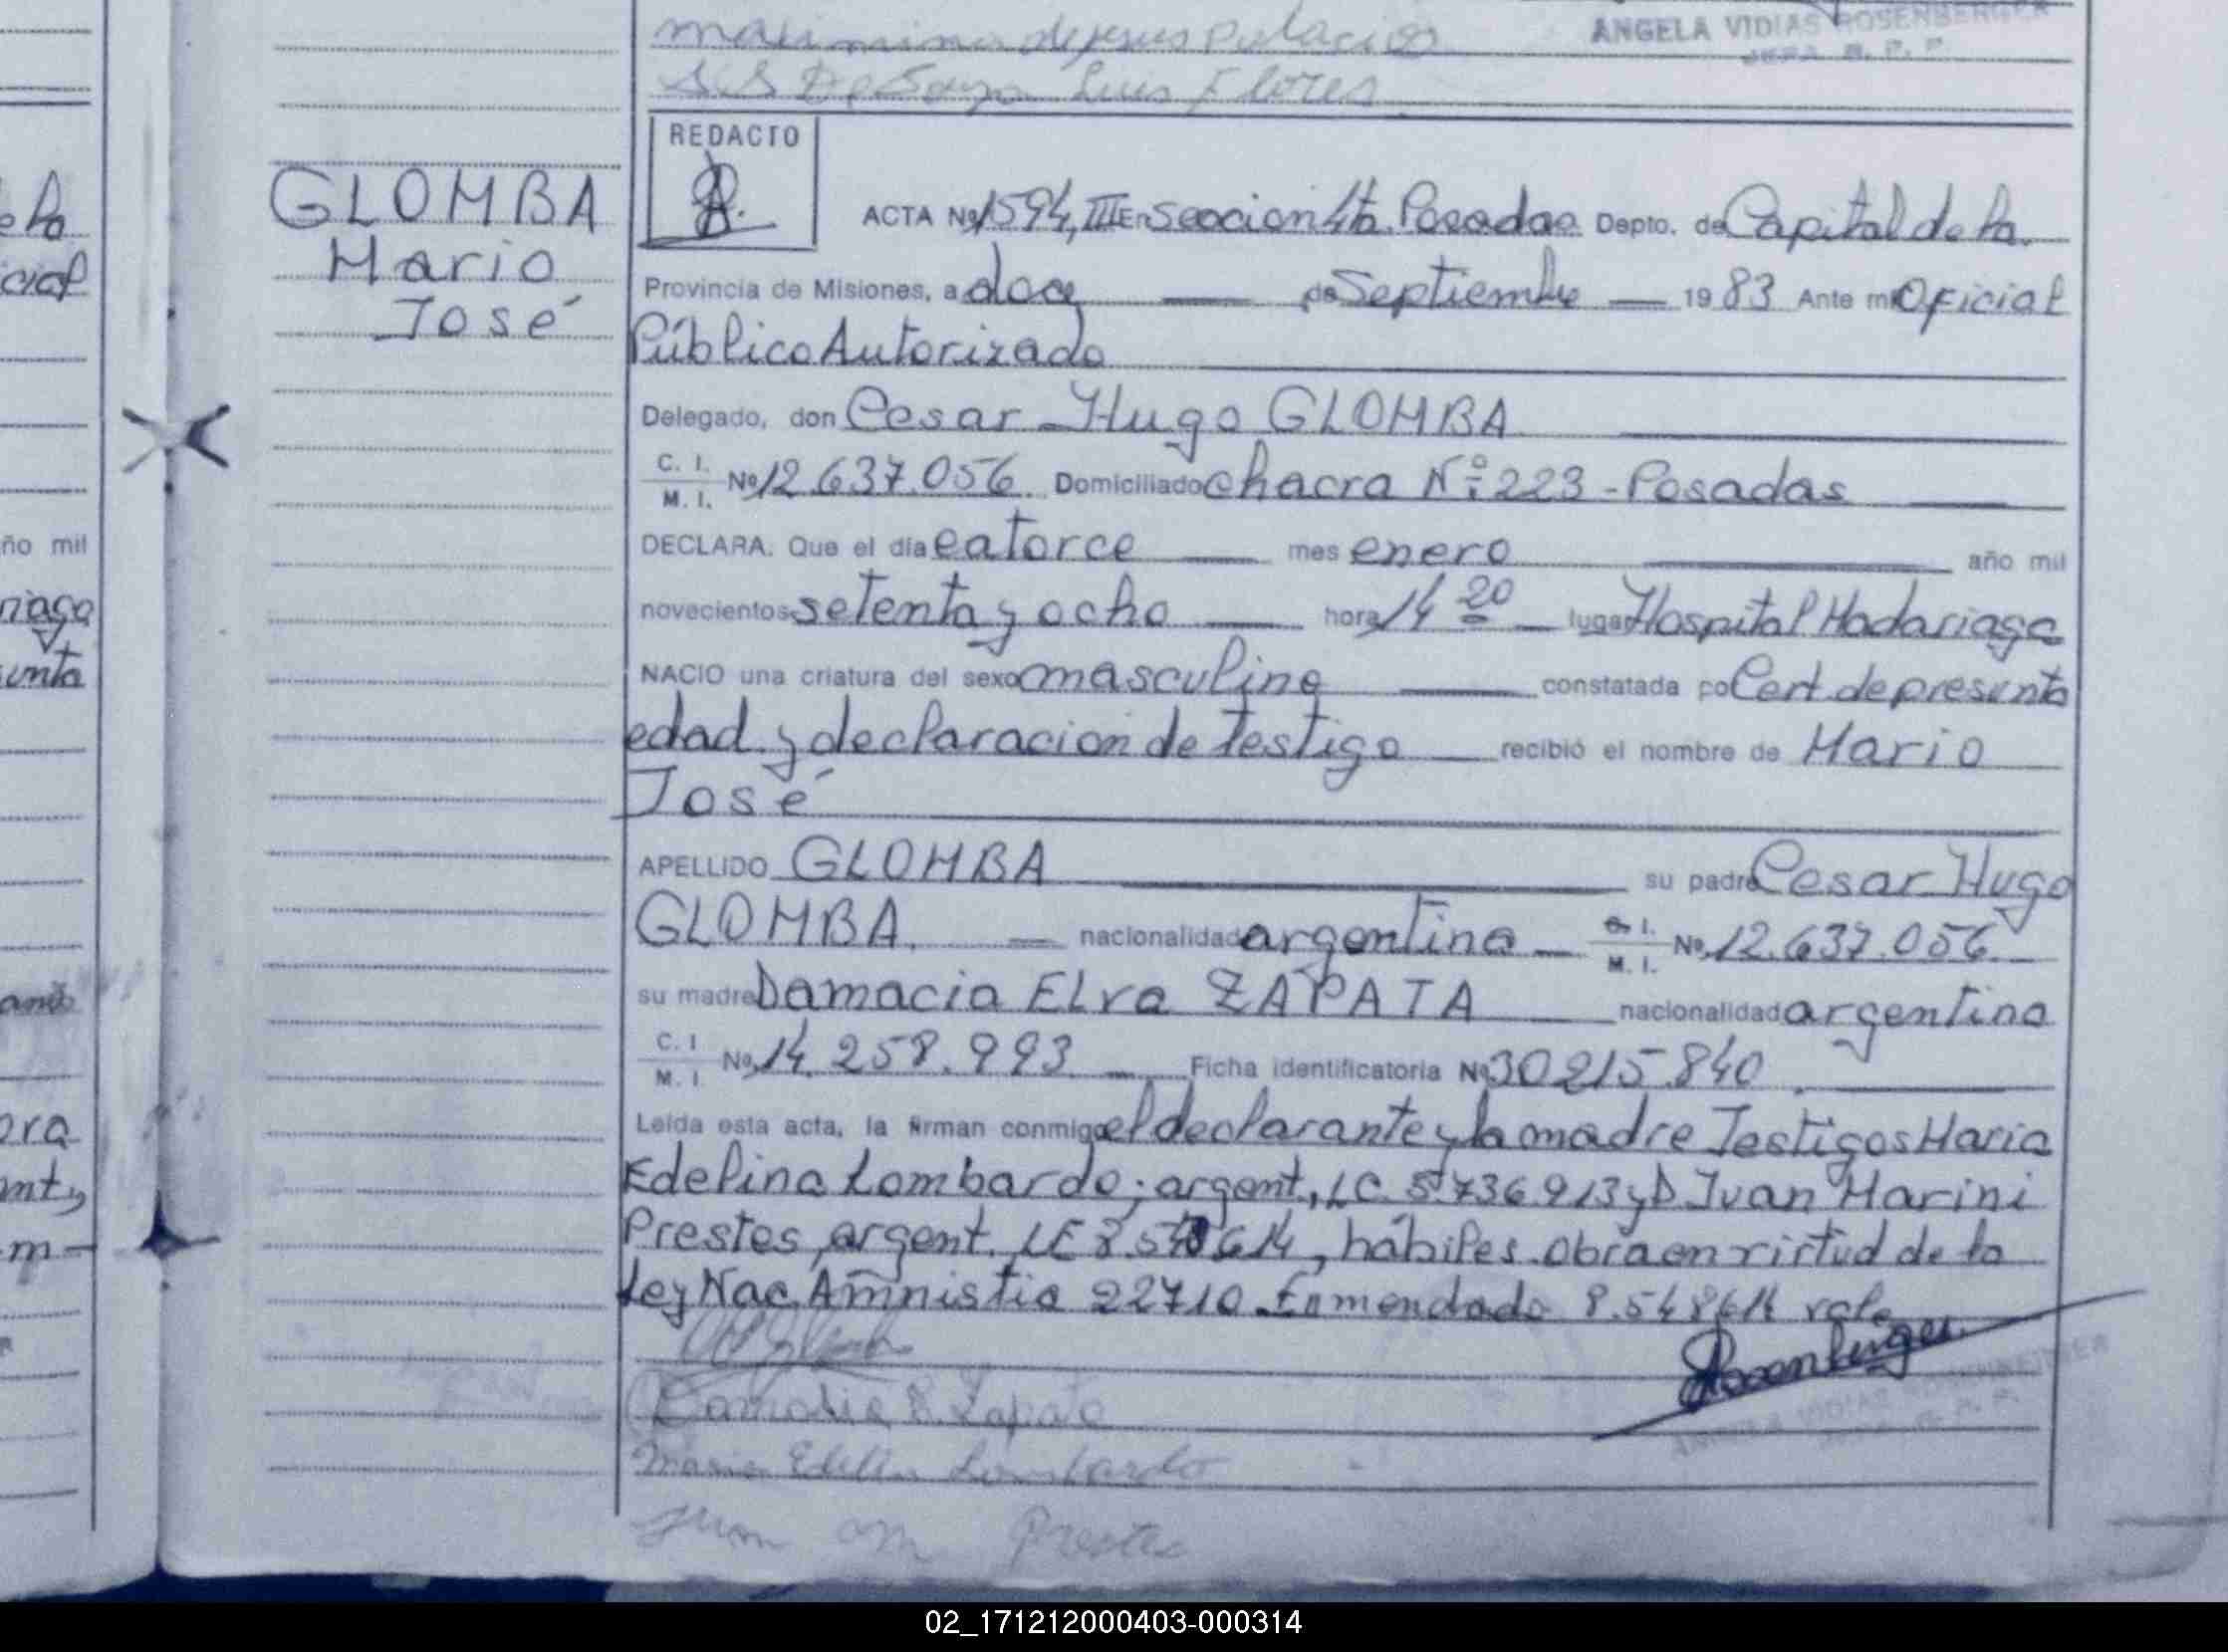 maximina de jesus Palacio
Luis Flores
ANGELA VIDIAS ROSENBERGER
JEFA R. P. P.
REDACTO
GLOMBA
Mario
José
ACTA Nº 1594, III En Seccion 4ta. Posadas Depto. de Capital de la
Provincia de Misiones, a doce de Septiembre 1983 Ante mi Oficial
Público Autorizado
Delegado, don Cesar Hugo GLOMBA
C. I.
M. I. Nº 12.637.056 Domiciliado chacra Nº: 223 - Posadas
DECLARA. Que el día catorce mes enero año mil
novecientos setenta y ocho hora 14 20 lugar Hospital Madariaga
NACIO una criatura del sexo masculino constatada por Cert. de presunta
edad y declaracion de testigo recibió el nombre de Mario
José
APELLIDO GLOMBA su padre Cesar Hugo
GLOMBA. nacionalidad argentina C. I.
M. I. Nº 12.637.056
su madre Damacia Elva ZAPATA nacionalidad argentina
C. I
M. I Nº 14.258.993 Ficha identificatoria Nº 30215.840
Leída esta acta, la firman conmigo el declarante y la madre Testigos Maria
Edelina Lombardo; argent., LC. 5.736.913 y D Juan Marini
Prestes, argent. LE 8.548614, hábiles. Obra en virtud de la
Ley Nac. Amnistia 22710. Enmendado 8.548614 vale
Rosenberger
ANGELA VIDIAS ROSENBERGER
Damasia E. Zapata
Maria Edelina Lombardo
Juan m Prestes
ño mil
riaga
unta
cial
ora
02_171212000403-000314